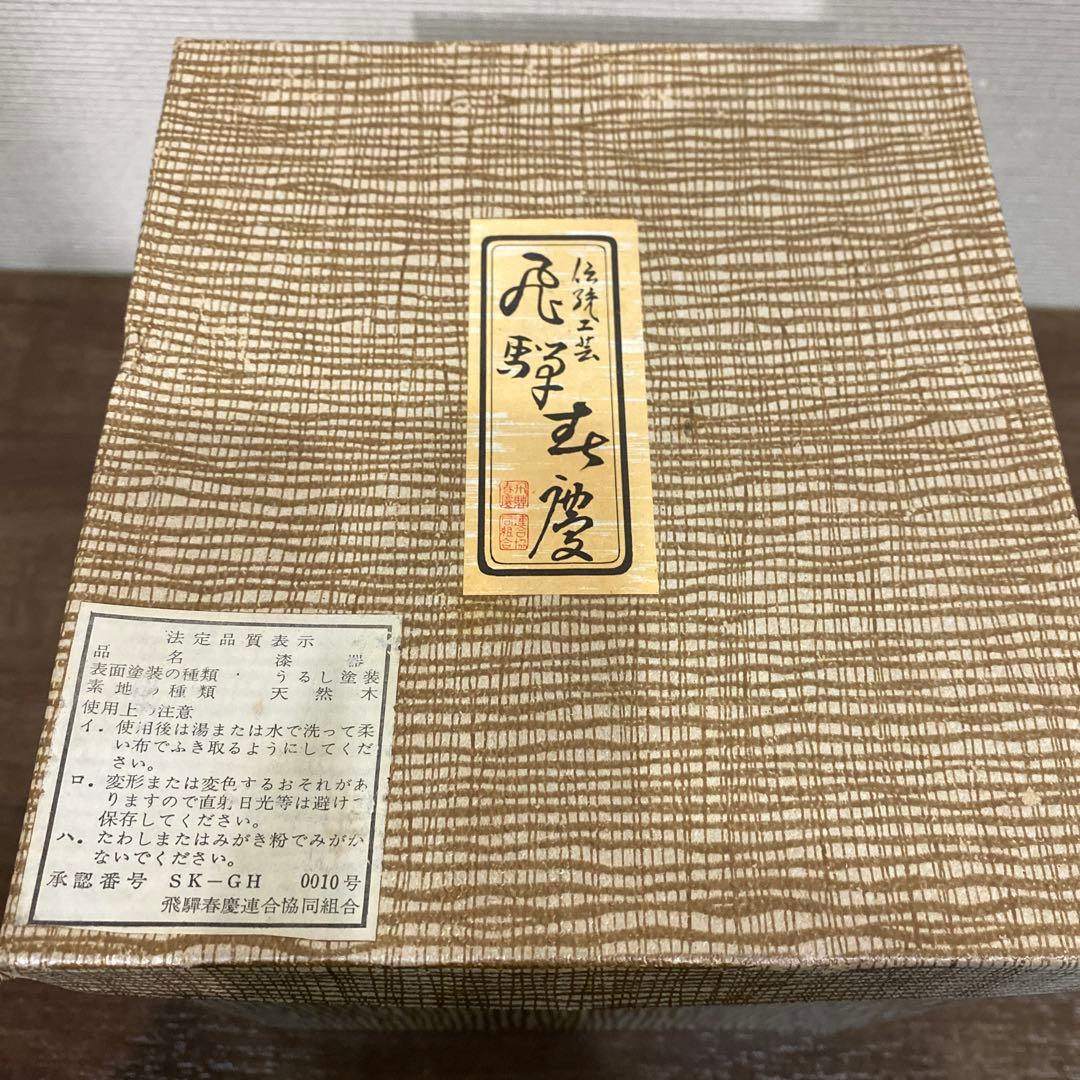 伝統工芸
飛騨春慶
飛騨
春慶
連合協
同組合
法定品質表示
品名 漆器
表面塗装の種類 ・ うるし塗装
素地の種類 天然木
使用上の注意
イ．使用後は湯または水で洗って柔
い布でふき取るようにしてくだ
さい。
ロ．変形または変色するおそれがあ
りますので直射日光等は避けて
保存してください。
ハ．たわしまたはみがき粉でみがか
ないでください。
承認番号 SK－GH 0010号
飛驒春慶連合協同組合